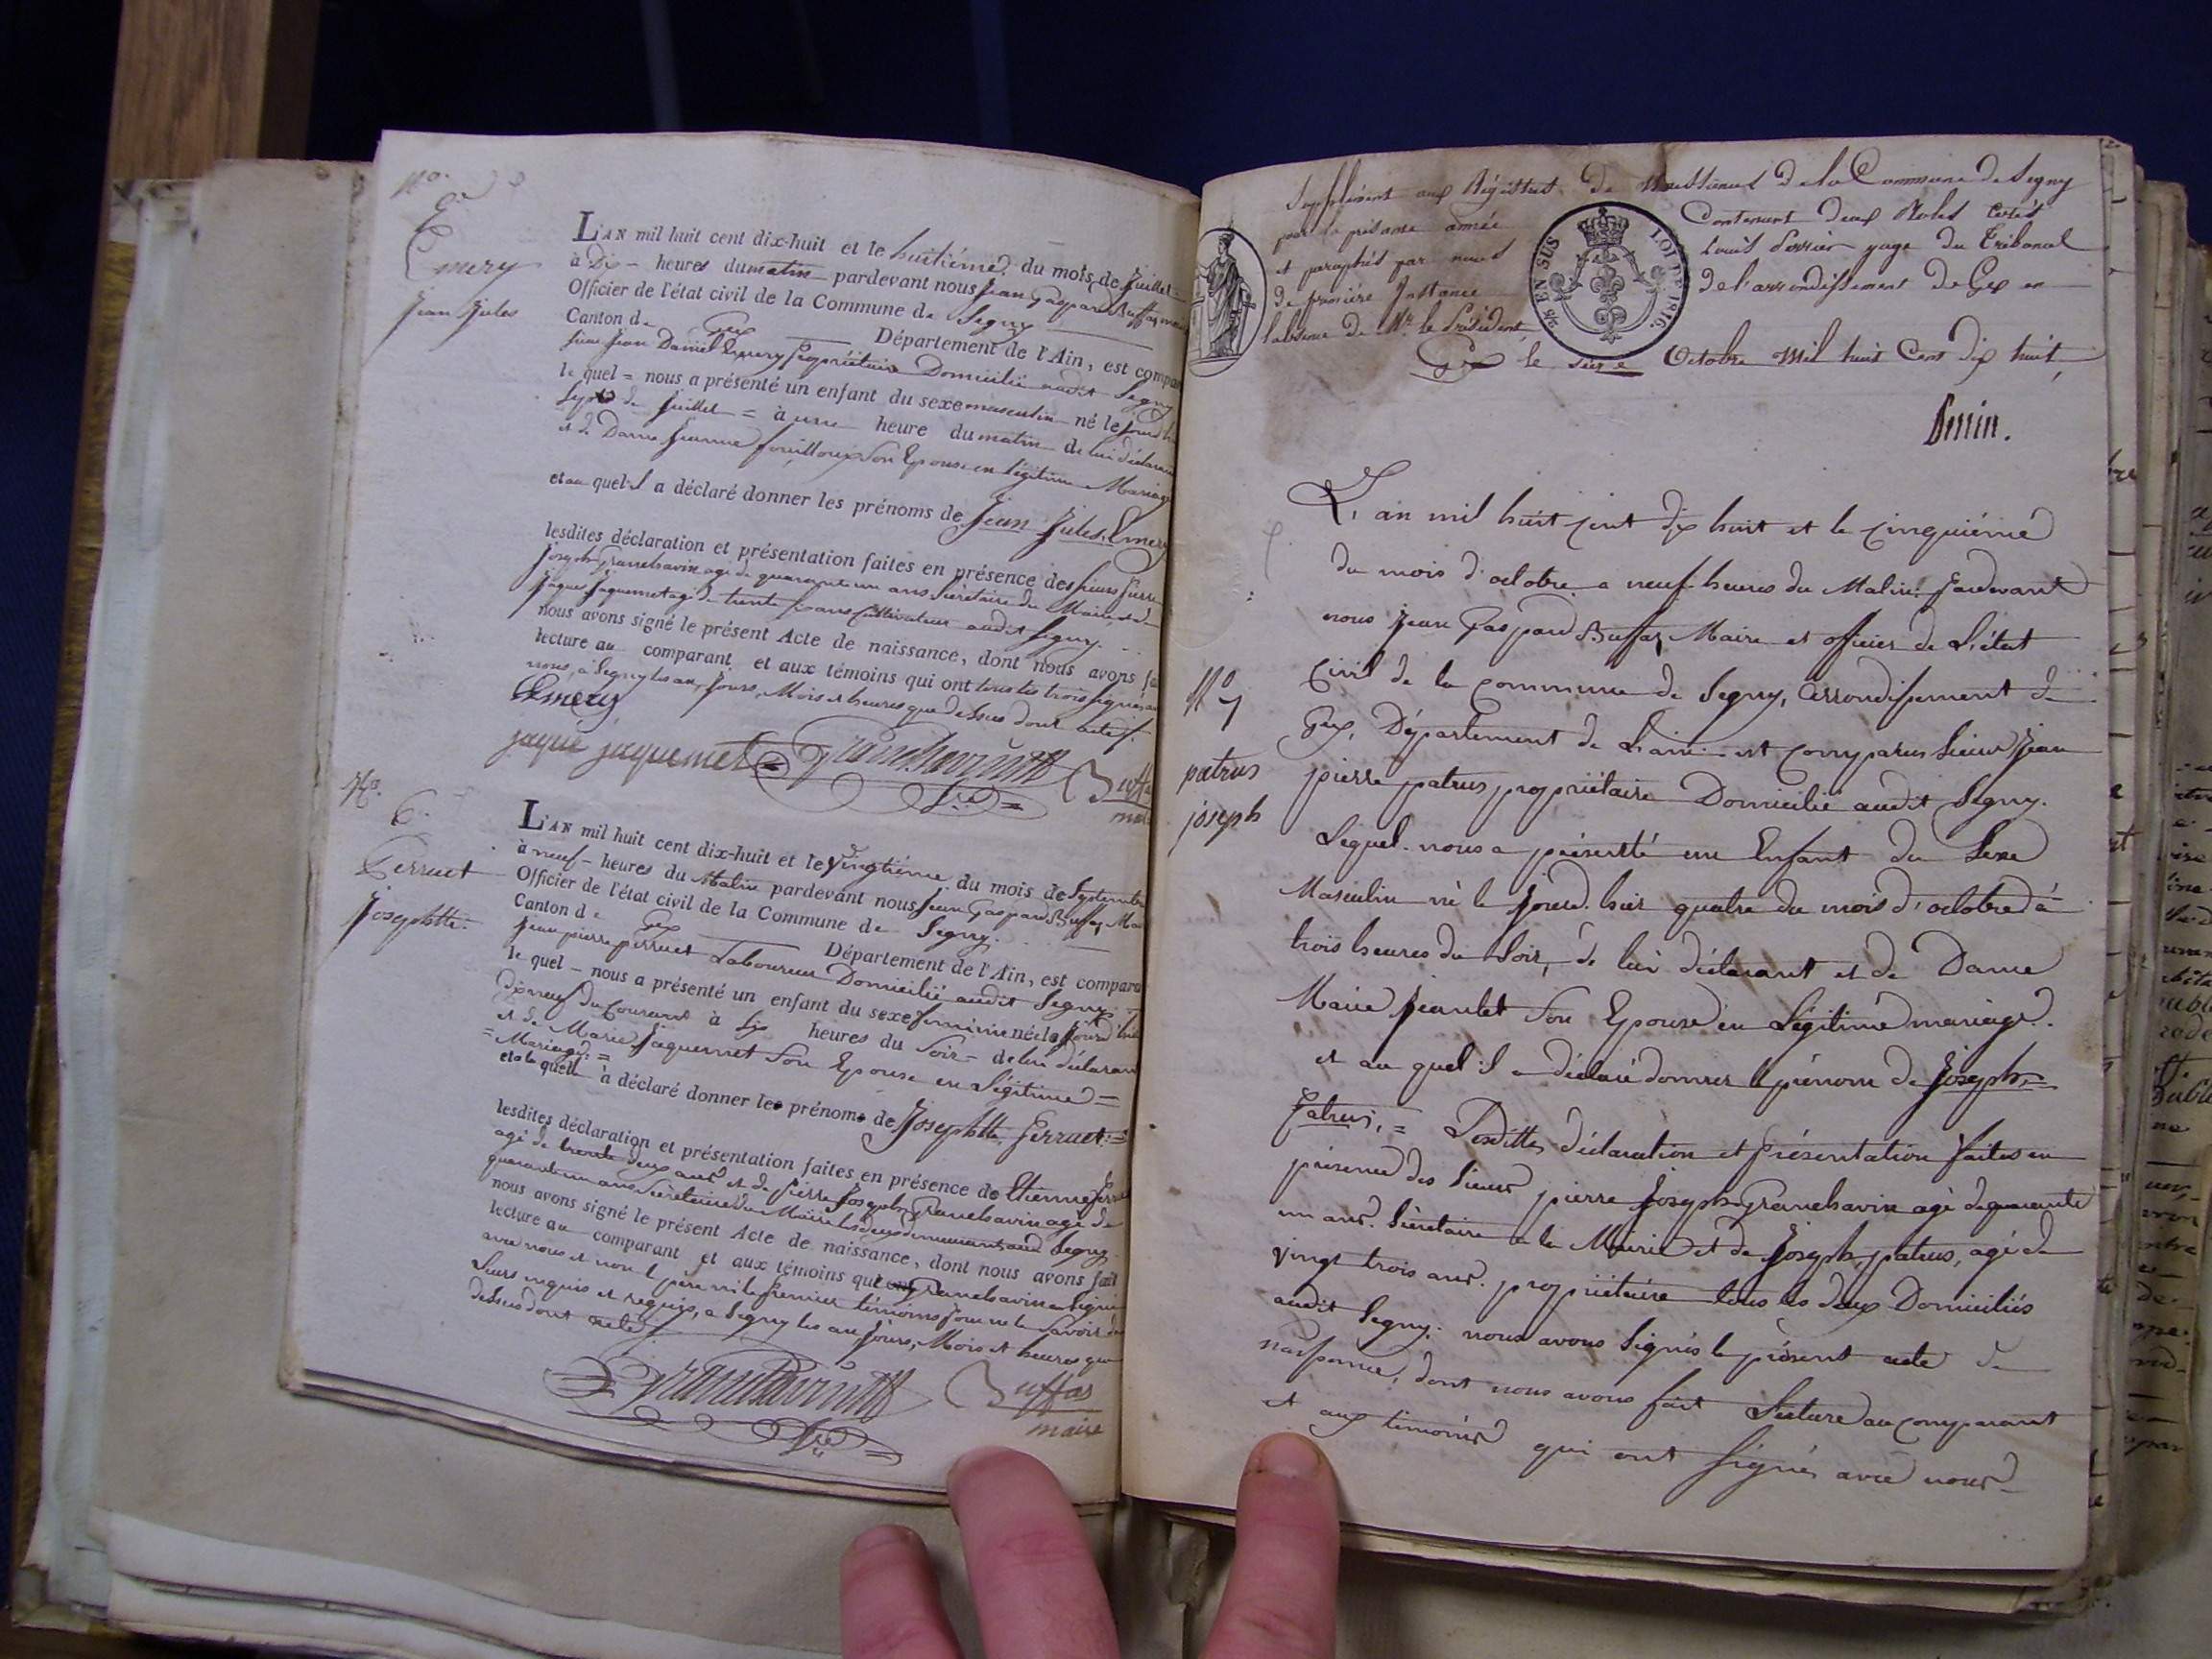 No.
5e
Emery
Jean Jules
L'AN mil huit cent dix-huit et le huitieme du mois de Juillet
à Dix - heures du matin pardevant nous Jean Gaspard Buffas
Officier de l'état civil de la Commune de Segny
Canton de Gex Département de l'Ain, est compa
Sieur Jean Daniel Emery Propriétaire Domicilié audit Segny
le quel = nous a présenté un enfant du sexe masculin né le jourd'h
Sept de Juillet = à une heure du matin de lui déclarant
et de Dame Jeanne fouilloux Son Epouse en légitime Mariage
et au quel il a déclaré donner les prénoms de Jean Jules, Emery
lesdites déclaration et présentation faites en présence des Sieurs Pierre
Joseph Granchavin agé de quarante un ans Secrétaire du Maire et de
Jaques Jaquemet agé de trente ans Cultivateur audit Segny.
nous avons signé le présent Acte de naissance, dont nous avons fa
lecture au comparant et aux témoins qui ont tous les trois signés
nous, à Segny les an, Jours, Mois et heures que dessus dont acte.
Emery
jaque jaquemet Granchavin Buffa
Sre mai
No.
6.
Perruet
Josephtte.
L'AN mil huit cent dix-huit et le vingtième du mois de Septembre
à neuf - heures du Matin pardevant nous Jean Gaspard Buffas, Ma
Officier de l'état civil de la Commune de Segny.
Canton de Gex Département de l'Ain, est compara
Jean pierre perruet Laboureur Domicilié audit Segny
le quel - nous a présenté un enfant du sexe féminin née le Jourd'hi
Dix neuf du Courant à Six heures du Soir - de lui déclaran
et de Marie Jaquemet Son Epouse en Légitime =
= Mariage =
et a la quelle à déclaré donner les prénoms de Josephtte, Perruet. =
lesdites déclaration et présentation faites en présence de Etienne Perru
agé de trente deux ans et de pierre Joseph Granchavin agé de
quarante un ans Secrétaire du Maire les deux demeurant aud Segny
nous avons signé le présent Acte de naissance, dont nous avons fait
lecture au comparant et aux témoins que Granchavin a Signé
avec nous et non l père ni le premier témoins pour ne le Savoir de
Leurs requis et requis, a Segny les an Jours, Mois et heures que
dessus dont acte.
Granchavin Buffas
Sre maire
Supplément aux Régistres de Naissances de la Commune de Segny
pour la présente année Contenant deux Roles Cotés
et paraphés par nous Louis Perrin Juge du Tribunal
de première Instance de l'arrondissement de Gex en
l'absence de Mr. le Président,
Gex le Octobre Mil huit Cent dix huit,
EN SUS LOI DE 1816.
Perrin.
L'an mil huit cent dix huit et le cinquième
du mois d'octobre a neuf heures du Matin. Pardevant
nous Jean Gaspard Buffas, Maire et officier de L'état
civil de la commune de Segny, Arrondissement de
Gex, Département de Lain. est comparus Sieur Jean
No
7
patrus
joseph
pierre patrus, propriétaire Domicilié audit Segny.
Lequel. nous a présenté une Enfant du Sexe
Masculin né le Jourd. hier quatre du mois d'octobre à
trois heures du Soir, de lui déclarant et de Dame
Marie Jeantet Son Epouse en Légitime mariage.
et au quel il a déclaré donner le prénom de Joseph,=
Patrus, = Desdittes déclaration et Présentation faites en
présence des Sieurs pierre Joseph Granchavin agé de quarante
un ans. Sécrétaire a la Mairie et de Joseph, patrus, agé de
vingt trois ans. propriétaire tous les deux Domiciliés
audit Segny: nous avons Signés le présent acte de
naissance, dont nous avons fait Lecture au comparant
et aux témoins qui ont Signés avec nous